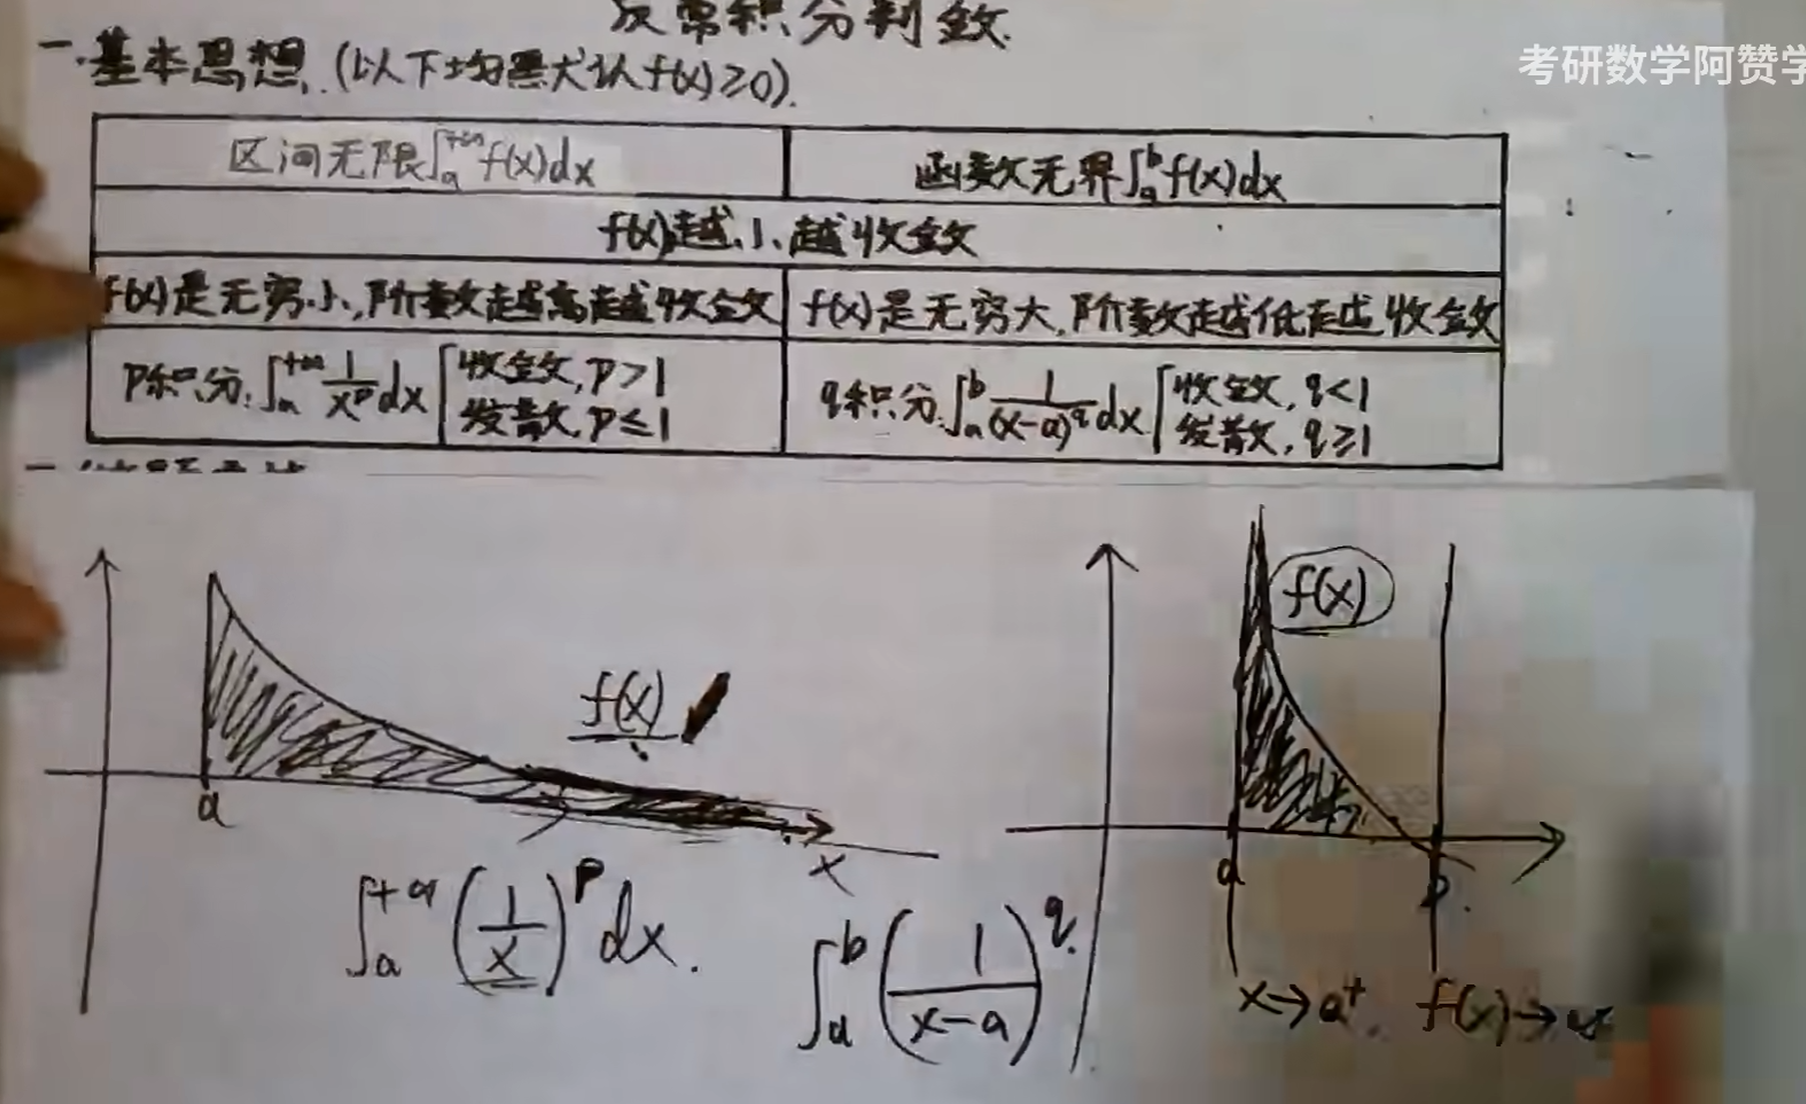 反常积分判敛.
考研数学阿赞学
一.基本思想.(以下均默认f(x)≥0).
区间无限∫ₐ^{+∞}f(x)dx
函数无界∫ₐ^b f(x)dx
f(x)越小,越收敛
f(x)是无穷小,阶数越高越收敛
f(x)是无穷大,阶数越低越收敛
P积分:∫ₐ^{+∞} 1/x^p dx [收敛,p>1
发散,p≤1
q积分:∫ₐ^b 1/(x-a)^q dx [收敛,q<1
发散,q≥1
f(x)
a
x
∫ₐ^{+∞} (1/x)^p dx.
f(x)
a
b
∫ₐ^b (1/(x-a))^q
x→a⁺. f(x)→∞